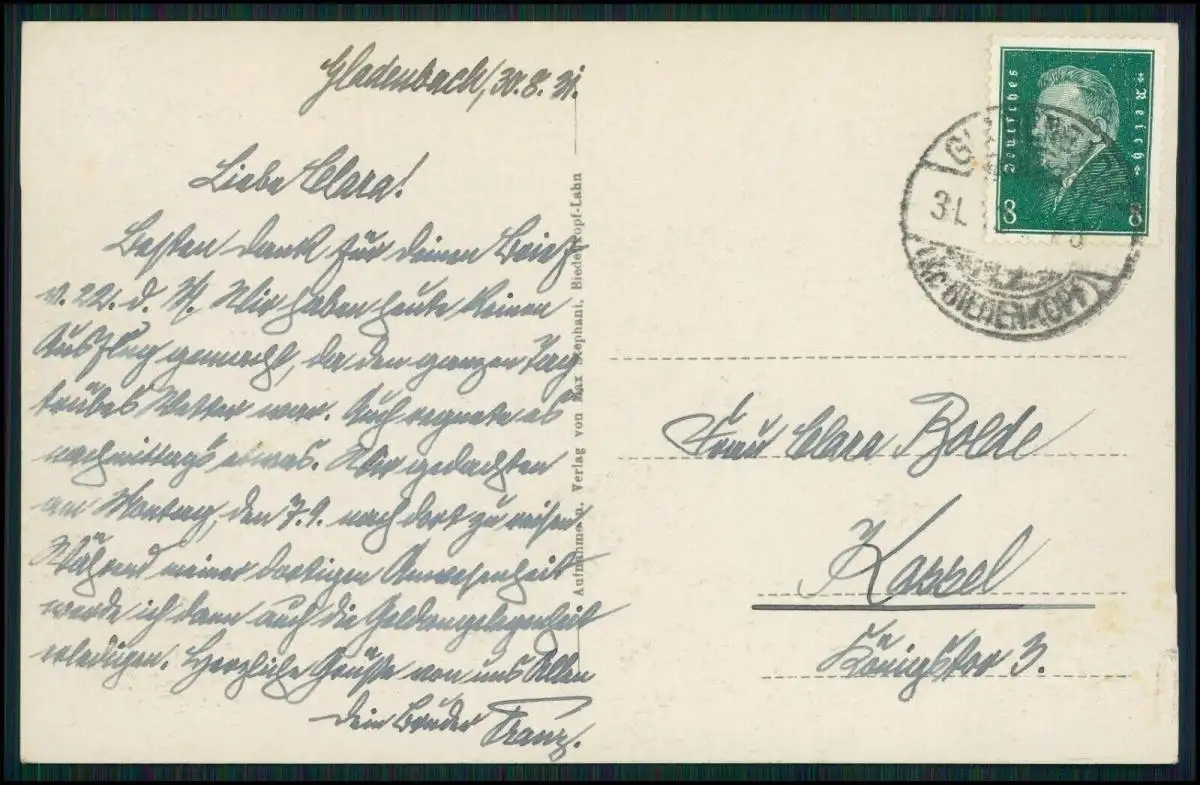 Gladenbach, 30.8.31.
Liebe Clara!
Besten Dank für deinen Brief
v. 22. d. M. Wir haben heute keinen
Ausflug gemacht, da den ganzen Tag
trübes Wetter war. Auch regnete es
nachmittags etwas. Wir gedachten
am Montag, den 7.9. nach dort zu reisen.
Während meiner dortigen Anwesenheit
werde ich dann auch die Geldangelegenheit
erledigen. Herzliche Grüße von uns Allen
Dein Bruder Franz.
Aufnahme u. Verlag von Max Stephani, Biedenkopf-Lahn
Deutsches Reich
8 8
31.
BIEDENKOPF
Frau Clara Bolde
Kassel
Königstor 3.